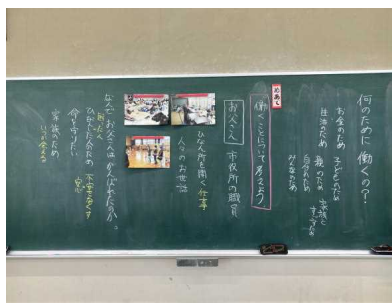 何のために働くの？
お金のため 子どものため 家族と
生活のため 親のため
自分のため
みんなのため
めあて
働くことについて考えよう
お父さん 市役所の職員
ひなん所を開く仕事
人々のお世話
なんでお父さんはがんばれたのか。
困った人
ひなんした人のため 不安をなくす
命を守りたい 安心
家族のため